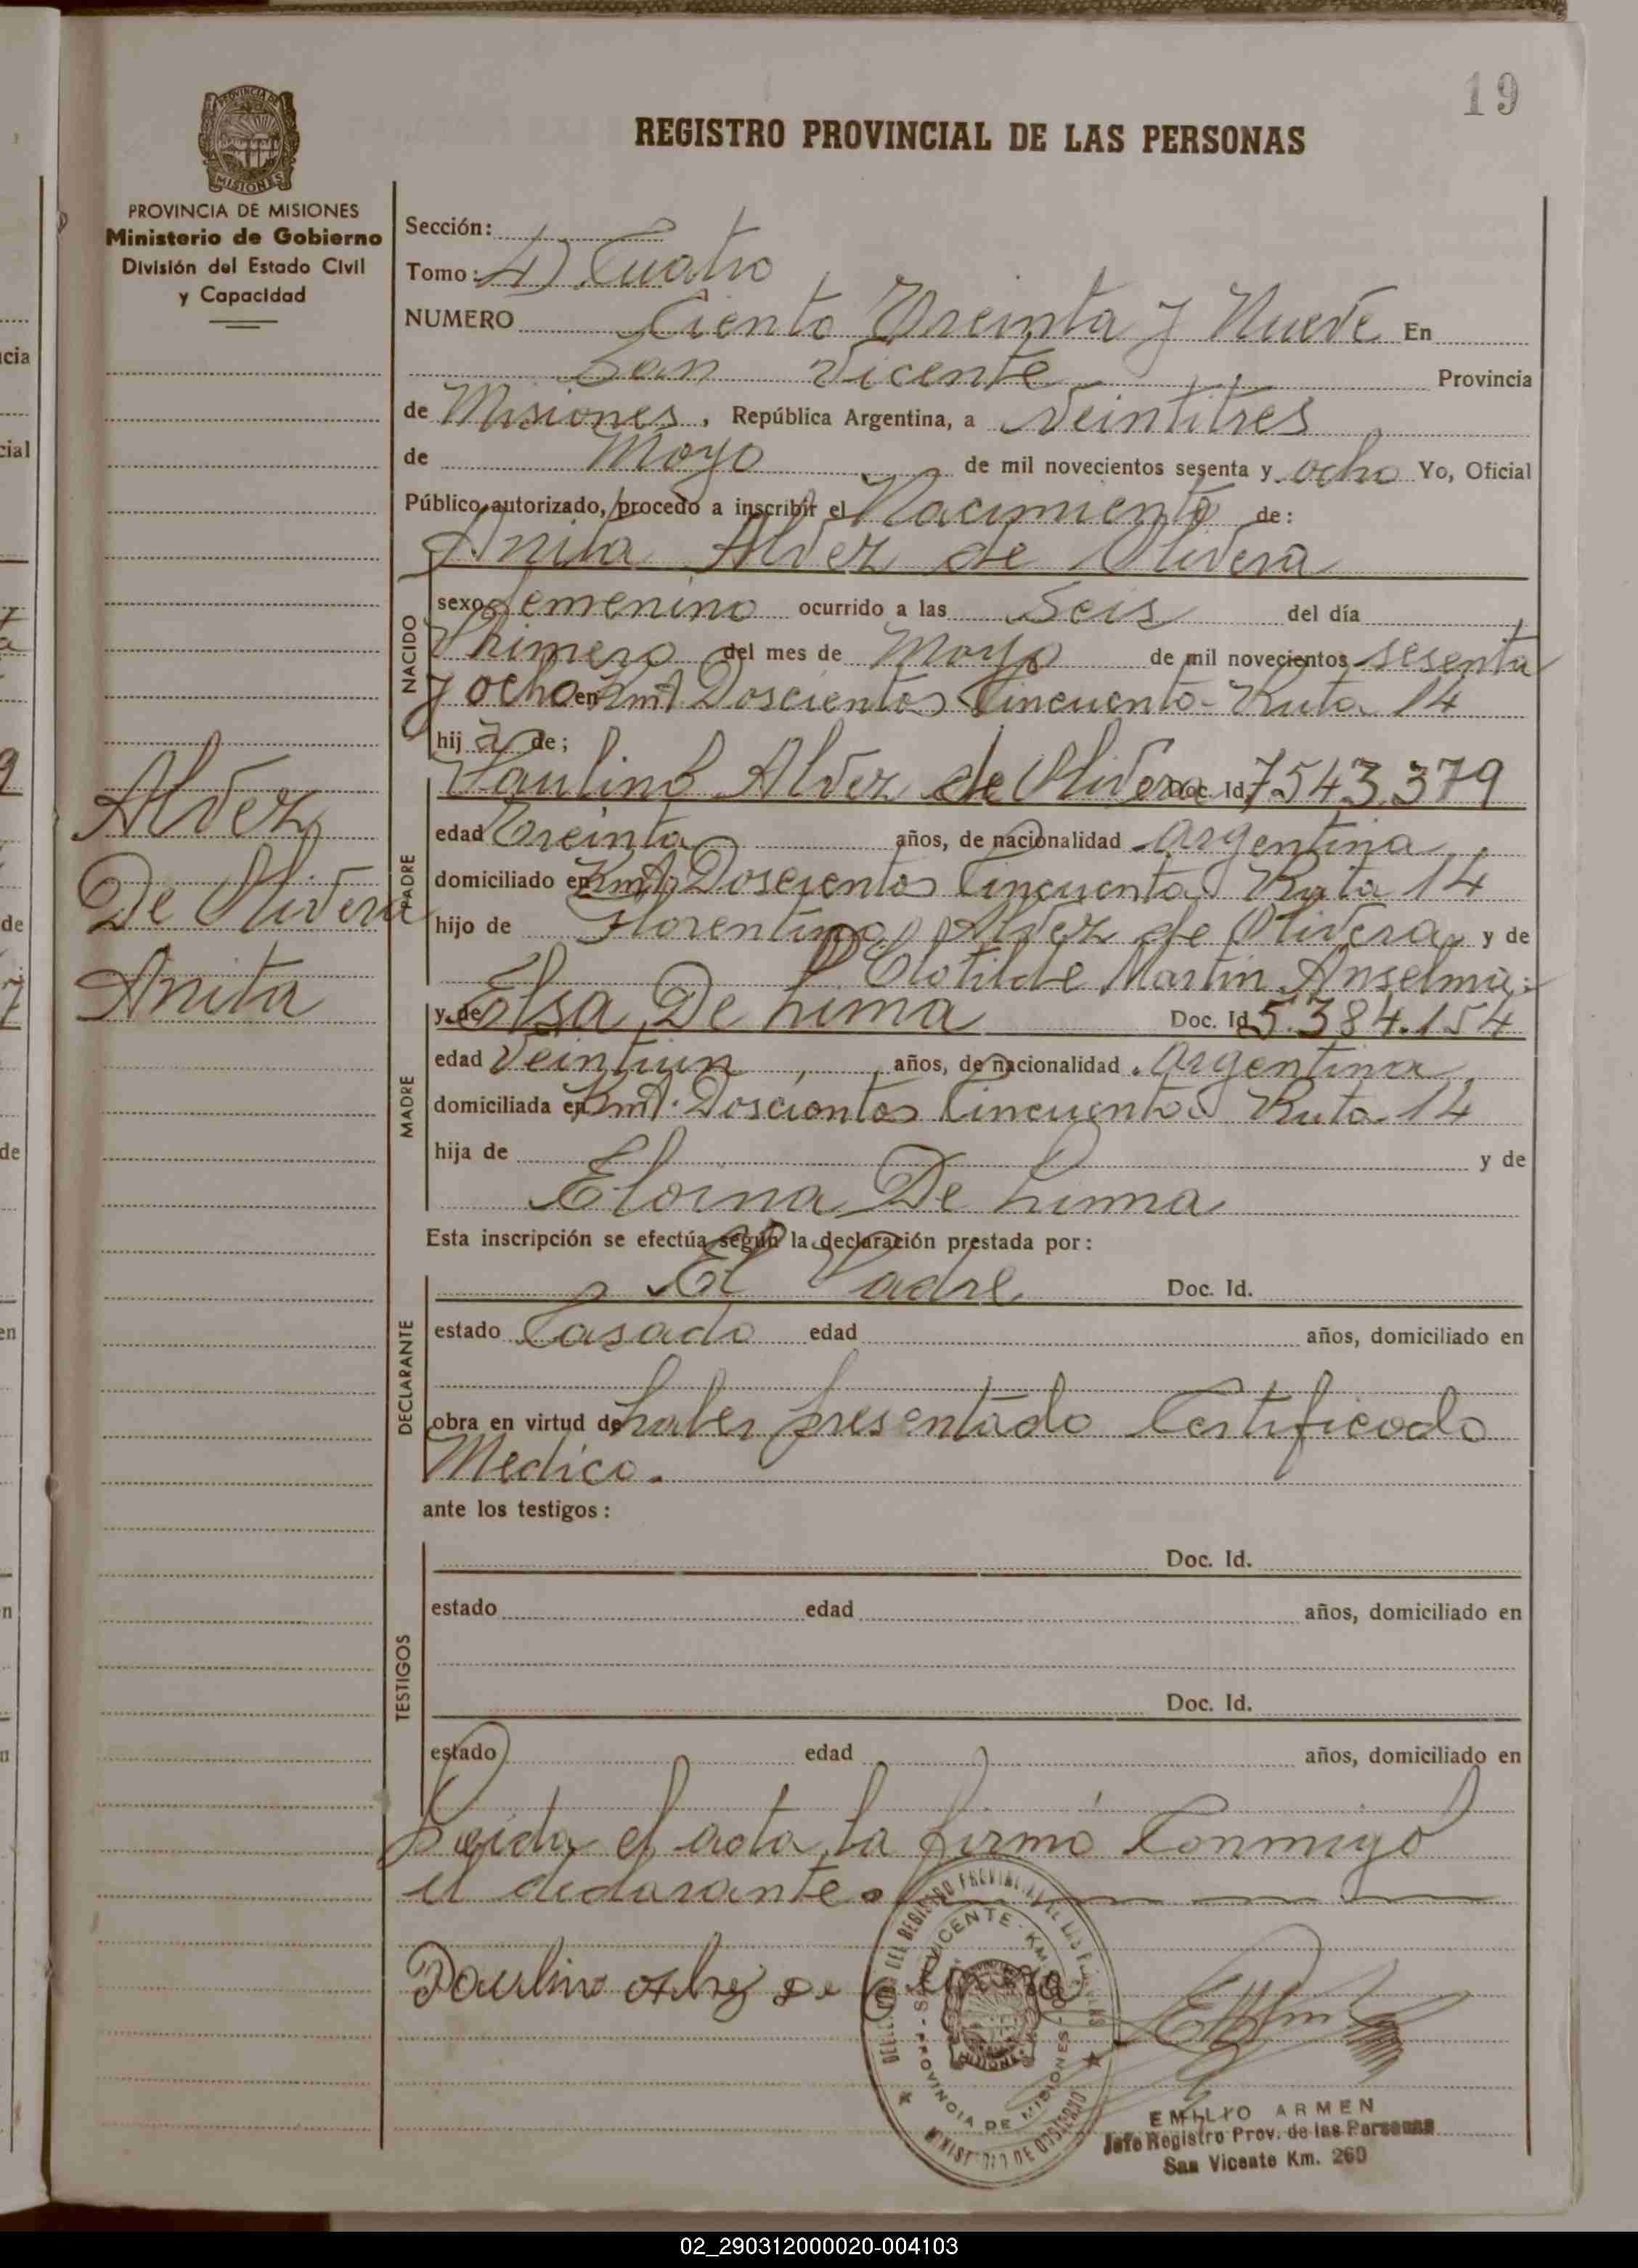 19
REGISTRO PROVINCIAL DE LAS PERSONAS
PROVINCIA DE MISIONES
Ministerio de Gobierno
División del Estado Civil
y Capacidad
Sección:
Tomo: 4) Cuatro
NUMERO Ciento Treinta y Nueve En
San Vicente Provincia
de Misiones, República Argentina, a Veintitres
de Mayo de mil novecientos sesenta y ocho Yo, Oficial
Público autorizado, procedo a inscribir el Nacimiento de:
Anita Alvez de Olivera
NACIDO
sexo femenino ocurrido a las Seis del día
Primero del mes de Mayo de mil novecientos sesenta
y ocho en Kmt Doscientos Cincuenta - Ruta 14
hij a de;
Alvez
De Olivera
Anita
PADRE
Paulino Alvez de Olivera Doc. Id. 7543.379
edad Treinta años, de nacionalidad argentina
domiciliado en Kmt. Doscientos Cincuenta Ruta 14
hijo de Florentino Alvez de Olivera y de
Clotilde Martin Anselma.
MADRE
y de Elsa De Lima Doc. Id 5.384.154
edad Veintiun años, de nacionalidad argentina
domiciliada en Kmt. Doscientos Cincuenta Ruta 14
hija de y de
Eloina De Lima
Esta inscripción se efectúa según la declaración prestada por:
DECLARANTE
El Padre Doc. Id.
estado Casado edad años, domiciliado en
obra en virtud de haber presentado Certificado
Medico.
ante los testigos:
TESTIGOS
Doc. Id.
estado edad años, domiciliado en
Doc. Id.
estado edad años, domiciliado en
Leida el acta la firmó Conmigo
el declarante.
Paulino Alvez de Olivera
SAN VICENTE - KM.
PROVINCIA DE MISIONES
MINISTERIO DE GOBIERNO
EMILIO ARMEN
Jefe Registro Prov. de las Personas
San Vicente Km. 260
02_290312000020-004103